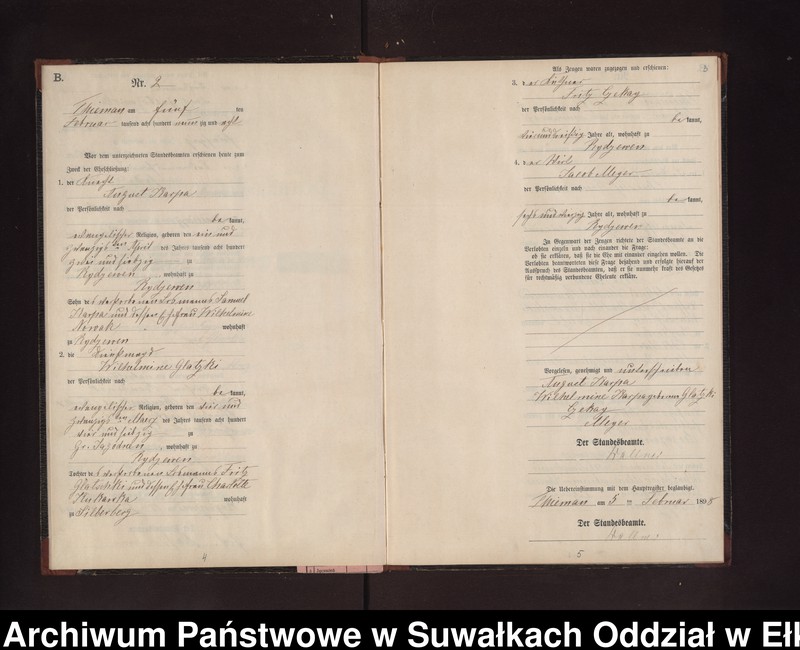 B.
Nr. 2
Thieman am fünf ten
Februar tausend acht hundert neun zig und acht
Vor dem unterzeichneten Standesbeamten erschienen heute zum
Zweck der Eheschließung:
1. der Knecht
August Karpa
der Persönlichkeit nach
be kannt,
evangelischer Religion, geboren den vier und
zwanzigsten April des Jahres tausend acht hundert
zwei und siebzig zu
Rydzewen, wohnhaft zu
Rydzewen
Sohn des verstorbenen Losmanns Samuel
Karpa und dessen Ehefrau Wilhelmine
Nowak wohnhaft
zu Rydzewen
2. die Dienstmagd
Wilhelmine Glatzki
der Persönlichkeit nach
be kannt,
evangelischer Religion, geboren den vier und
zwanzigsten März des Jahres tausend acht hundert
vier und siebzig zu
Gr. , wohnhaft zu
Rydzewen
Tochter des verstorbenen Losmanns Fritz
und dessen Ehefrau Charlotte
wohnhaft
zu Silberberg
4
Als Zeugen waren zugezogen und erschienen:
3. der
Fritz
der Persönlichkeit nach
be kannt,
Jahre alt, wohnhaft zu
Rydzewen
4. der Wirt
Jacob Meyer
der Persönlichkeit nach
be kannt,
sechs und vierzig Jahre alt, wohnhaft zu
Rydzewen
In Gegenwart der Zeugen richtete der Standesbeamte an die
Verlobten einzeln und nach einander die Frage:
ob sie erklären, daß sie die Ehe mit einander eingehen wollen. Die
Verlobten beantworteten diese Frage bejahend und erfolgte hierauf der
Ausspruch des Standesbeamten, daß er sie nunmehr kraft des Gesetzes
für rechtmäßig verbundene Eheleute erkläre.
Vorgelesen, genehmigt und unterschrieben
August Karpa
Wilhelmine Karpa geborene Glatzki
Meyer
Der Standesbeamte.
Die Uebereinstimmung mit dem Hauptregister beglaubigt.
Thieman am 5 ten Februar 1898
Der Standesbeamte.
5
Archiwum Państwowe w Suwałkach Oddział w Ełk